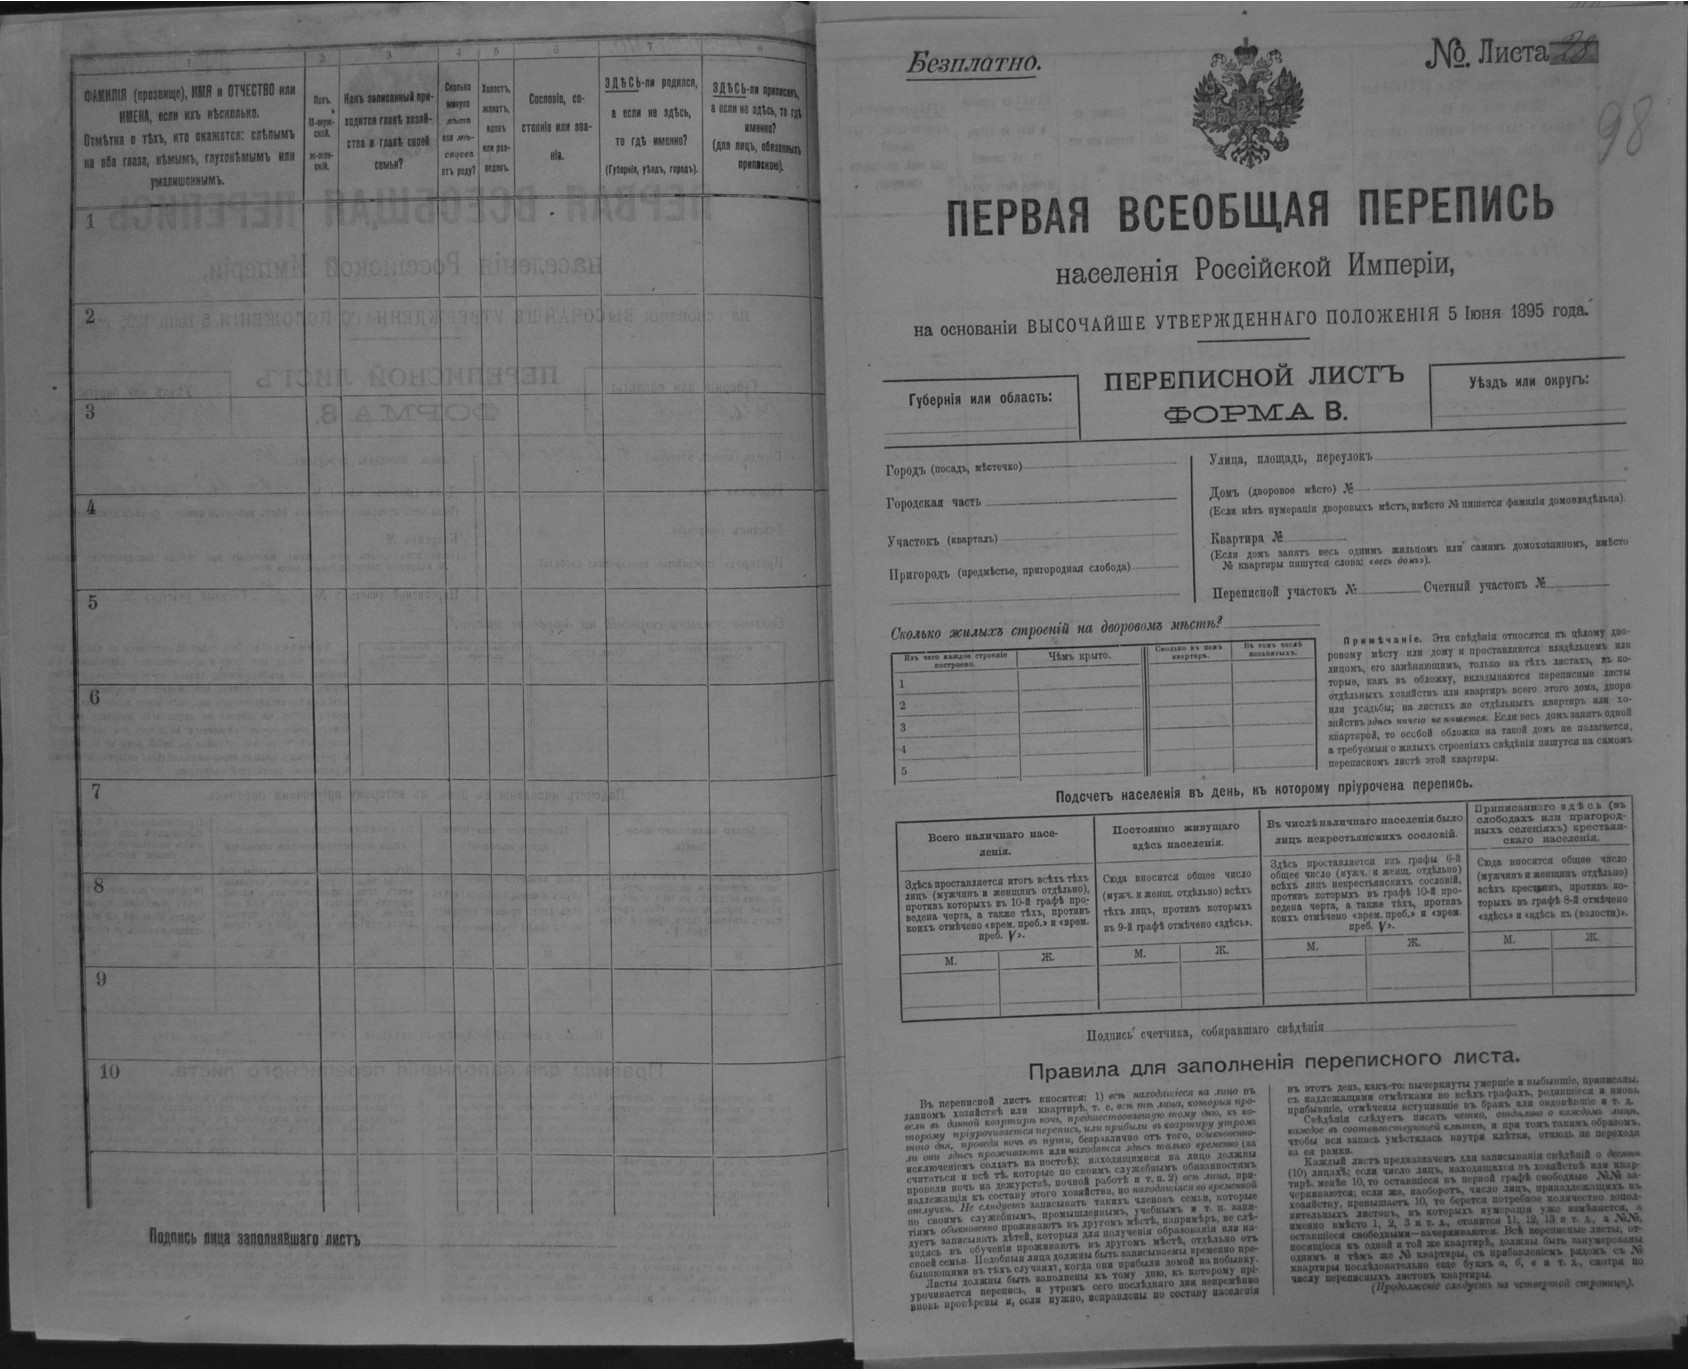 1
2
3
4
5
6
7
8
ФАМИЛІЯ (прозвище), ИМЯ и ОТЧЕСТВО или
ИМЕНА, если ихъ нѣсколько.
Отмѣтка о тѣхъ, кто окажется: слѣпымъ
на оба глаза, нѣмымъ, глухонѣмымъ или
умалишеннымъ.
Полъ.
М-муж-
ской.
ж-жен-
скій.
Какъ записанный при-
ходится главѣ хозяй-
ства и главѣ своей
семьи?
Сколько
минуло
лѣтъ
или мѣ-
сяцевъ
отъ роду?
Холостъ,
женатъ,
вдовъ
или раз-
веденъ.
Сословіе, со-
стояніе или зва-
ніе.
ЗДѢСЬ-ли родился,
а если не здѣсь,
то гдѣ именно?
(Губернія, уѣздъ, городъ).
ЗДѢСЬ-ли приписанъ,
а если не здѣсь, то гдѣ
именно?
(для лицъ, обязанныхъ
припискою).
1
2
3
4
5
6
7
8
9
10
Подпись лица заполнявшаго листъ
Безплатно.
№ Листа 28
98
ПЕРВАЯ ВСЕОБЩАЯ ПЕРЕПИСЬ
населенія Россійской Имперіи,
на основаніи ВЫСОЧАЙШЕ УТВЕРЖДЕННАГО ПОЛОЖЕНІЯ 5 Іюня 1895 года.
Губернія или область:
ПЕРЕПИСНОЙ ЛИСТЪ
ФОРМА В.
Уѣздъ или округъ:
Городъ (посадъ, мѣстечко)
Городская часть
Участокъ (кварталъ)
Пригородъ (предмѣстье, пригородная слобода)
Улица, площадь, переулокъ
Домъ (дворовое мѣсто) №
(Если нѣтъ нумераціи дворовыхъ мѣстъ, вмѣсто № пишется фамилія домовладѣльца)
Квартира №
(Если домъ занятъ весь однимъ жильцомъ или самимъ домохозяиномъ, вмѣсто
№ квартиры пишутся слова: «весь домъ»).
Переписной участокъ № Счетный участокъ №
Сколько жилыхъ строеній на дворовомъ мѣстѣ?
Изъ чего каждое строеніе
построено.
Чѣмъ крыто.
Сколько въ немъ
квартиръ.
Въ томъ числѣ
незанятыхъ.
1
2
3
4
5
Примѣчаніе. Эти свѣдѣнія относятся къ цѣлому дво-
ровому мѣсту или дому и проставляются владѣльцемъ или
лицомъ, его замѣняющимъ, только на тѣхъ листахъ, въ ко-
торые, какъ въ обложку, вкладываются переписные листы
отдѣльныхъ хозяйствъ или квартиръ всего этого дома, двора
или усадьбы; на листахъ же отдѣльныхъ квартиръ или хо-
зяйствъ здѣсь ничего не пишется. Если весь домъ занятъ одной
квартирой, то особой обложки на такой домъ не полагается,
а требуемыя о жилыхъ строеніяхъ свѣдѣнія пишутся на самомъ
переписномъ листѣ этой квартиры.
Подсчетъ населенія въ день, къ которому пріурочена перепись.
Всего наличнаго насе-
ленія.
Здѣсь проставляется итогъ всѣхъ тѣхъ
лицъ (мужчинъ и женщинъ отдѣльно),
противъ которыхъ въ 10-й графѣ про-
ведена черта, а также тѣхъ, противъ
коихъ отмѣчено «врем. преб.» и «врем.
преб. V».
М. Ж.
Постоянно живущаго
здѣсь населенія.
Сюда вносится общее число
(мужч. и женщ. отдѣльно) всѣхъ
тѣхъ лицъ, противъ которыхъ
въ 9-й графѣ отмѣчено «здѣсь».
М. Ж.
Въ числѣ наличнаго населенія было
лицъ некрестьянскихъ сословій.
Здѣсь проставляется изъ графы 6-й
общее число (мужч. и женщ. отдѣльно)
всѣхъ лицъ некрестьянскихъ сословій,
противъ которыхъ въ графѣ 10-й про-
ведена черта, а также тѣхъ, противъ
коихъ отмѣчено «врем. преб.» и «врем.
преб. V».
М. Ж.
Приписаннаго здѣсь (въ
слободахъ или пригород-
ныхъ селеніяхъ) крестьян-
скаго населенія.
Сюда вносится общее число
(мужчинъ и женщинъ отдѣльно)
всѣхъ крестьянъ, противъ ко-
торыхъ въ графѣ 8-й отмѣчено
«здѣсь» и «здѣсь къ (волости)».
М. Ж.
Подпись счетчика, собиравшаго свѣдѣнія
Правила для заполненія переписного листа.
Въ переписной листъ вносятся: 1) всѣ находящіеся на лицо въ
данномъ хозяйствѣ или квартирѣ, т. е. всѣ тѣ лица, которыя про-
вели въ данной квартирѣ ночь, предшествовавшую тому дню, къ ко-
торому пріурочивается перепись, или прибыли въ квартиру утромъ
того дня, проведя ночь въ пути, безразлично отъ того, обыкновенно-
ли они здѣсь проживаютъ или находятся здѣсь только временно (за
исключеніемъ солдатъ на постоѣ); находящимися на лицо должны
считаться и всѣ тѣ, которые по своимъ служебнымъ обязанностямъ
провели ночь на дежурствѣ, ночной работѣ и т. п. 2) всѣ лица, при-
надлежащія къ составу этого хозяйства, но находящіяся во временной
отлучкѣ. Не слѣдуетъ записывать такихъ членовъ семьи, которые
по своимъ служебнымъ, промышленнымъ, учебнымъ и т. п. заня-
тіямъ обыкновенно проживаютъ въ другомъ мѣстѣ, напримѣръ, не слѣ-
дуетъ записывать дѣтей, которыя для полученія образованія или на-
ходясь въ обученіи проживаютъ въ другомъ мѣстѣ, отдѣльно отъ
своей семьи. Подобныя лица должны быть записываемы временно пре-
бывающими въ тѣхъ случаяхъ, когда они прибыли домой на побывку.
Листы должны быть заполнены къ тому дню, къ которому прі-
урочивается перепись, и утромъ сего послѣдняго дня непремѣнно
вновь провѣрены и, если нужно, исправлены по составу населенія
въ этотъ день, какъ-то: вычеркнуты умершіе и выбывшіе, приписаны,
съ надлежащими отмѣтками во всѣхъ графахъ, родившіеся и вновь
прибывшіе, отмѣчены вступившіе въ бракъ или овдовѣвшіе и т. д.
Свѣдѣнія слѣдуетъ писать четко, отдѣльно о каждомъ лицѣ,
каждое въ соотвѣтствующей клѣткѣ, и при томъ такимъ образомъ,
чтобы вся запись умѣстилась внутри клѣтки, отнюдь не переходя
за ея рамки.
Каждый листъ предназначенъ для записыванія свѣдѣній о десяти
(10) лицахъ; если число лицъ, находящихся въ хозяйствѣ или квар-
тирѣ, менѣе 10, то оставшіеся въ первой графѣ свободные №№ за-
черкиваются; если же, наоборотъ, число лицъ, принадлежащихъ къ
хозяйству, превышаетъ 10, то берется потребное количество допол-
нительныхъ листовъ, въ которыхъ нумерація уже измѣняется, а
именно вмѣсто 1, 2, 3 и т. д., ставится 11, 12, 13 и т. д., а №№,
оставшіеся свободными—зачеркиваются. Всѣ переписные листы, от-
носящіеся къ одной и той же квартирѣ, должны быть занумерованы
однимъ и тѣмъ же № квартиры, съ прибавленіемъ рядомъ съ №
квартиры послѣдовательно еще буквъ а, б, в и т. д., смотря по
числу переписныхъ листовъ квартиры.
(Продолженіе слѣдуетъ на четвертой страницѣ).